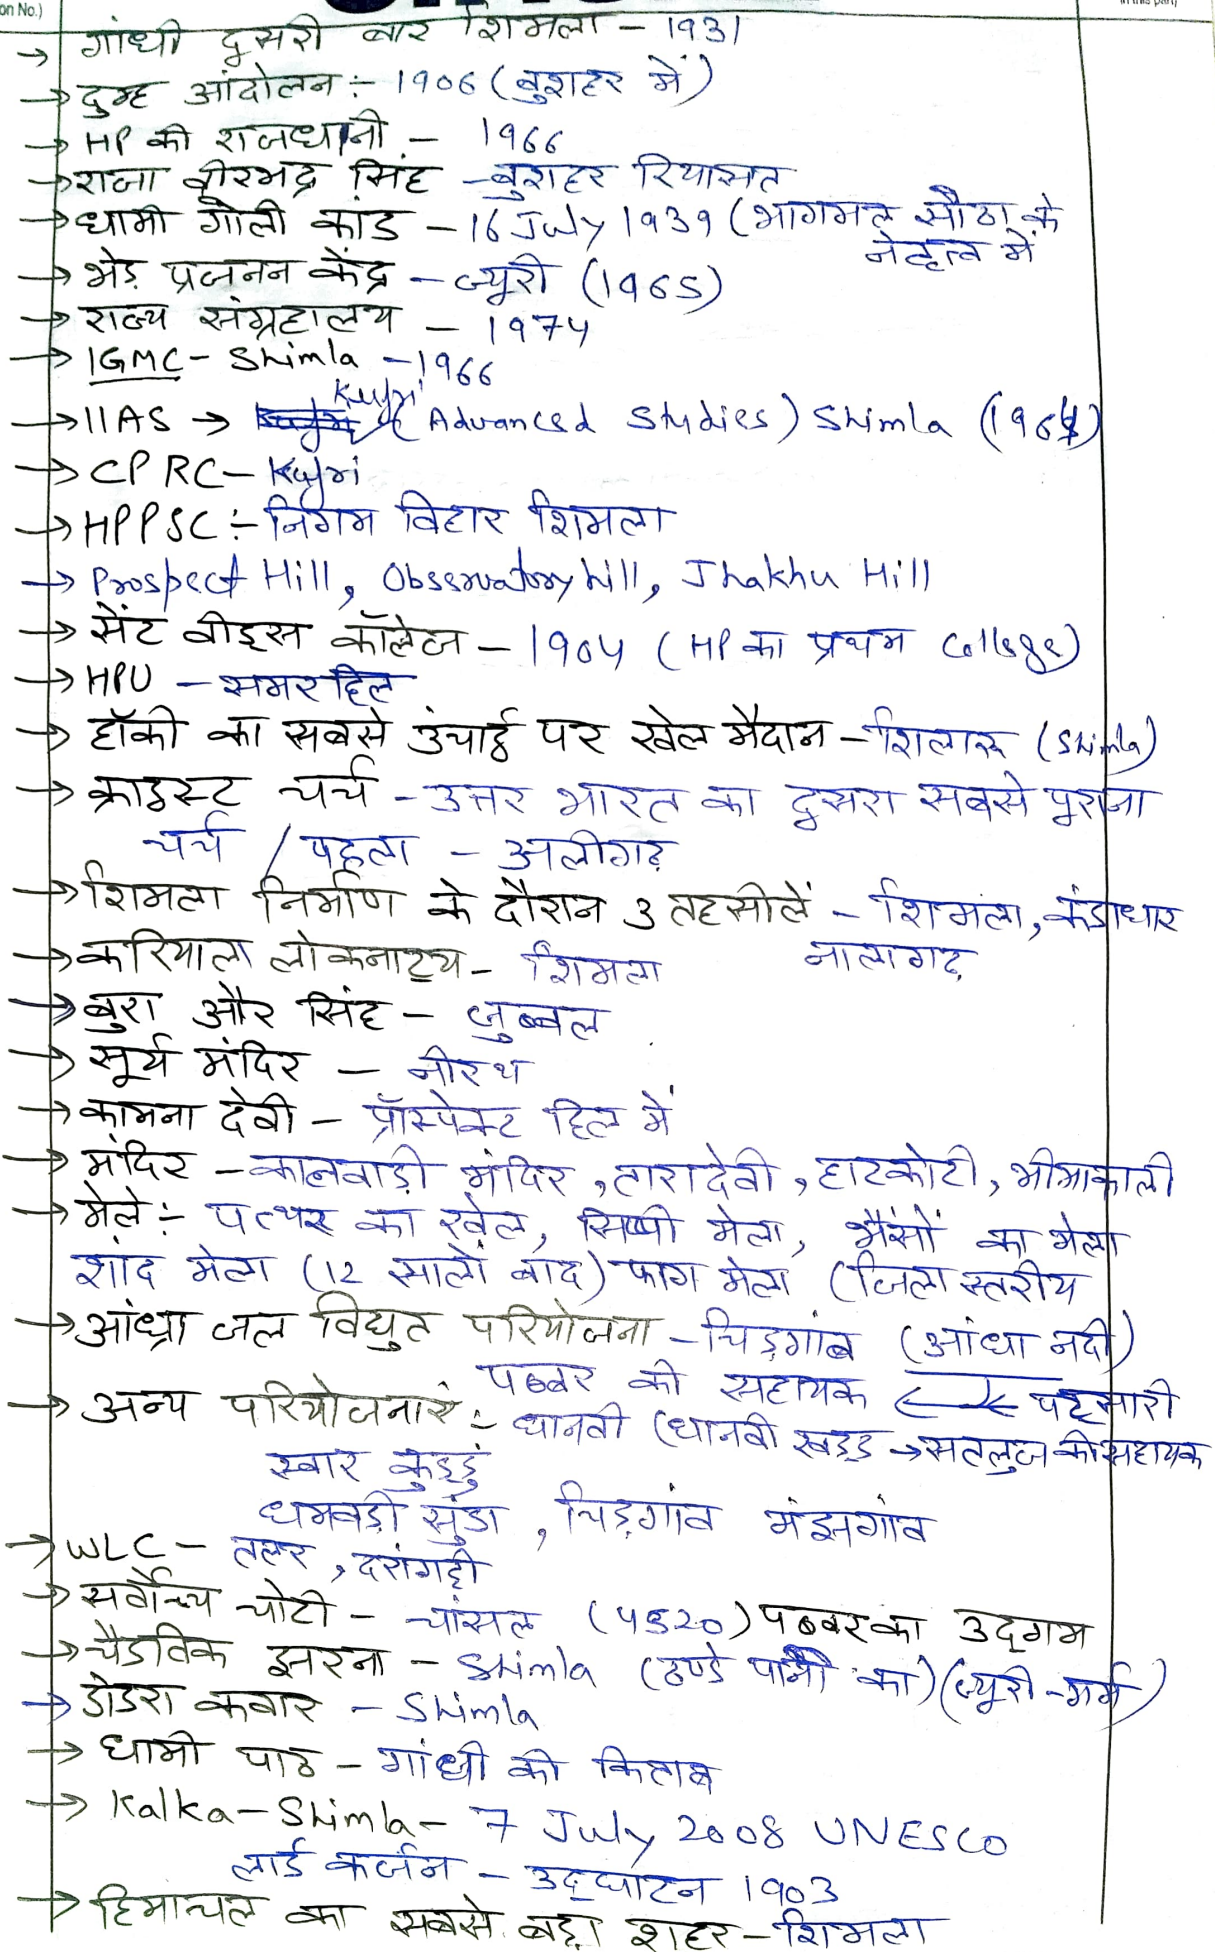 on No.)
→ गांधी दुसरी बार शिमला - 1931
→ दुम्ह आंदोलन :- 1906 (बुशहर में)
→ HP की राजधानी - 1966
→ राजा वीरभद्र सिंह - बुशहर रियासत
→ धामी गोली कांड - 16 July 1939 (भागमल सौठा के
नेतृत्व में
→ भेड़ प्रजनन केंद्र - ज्यूरी (1965)
→ राज्य संग्रहालय - 1974
→ IGMC - Shimla - 1966
Kufri
→ IIAS → (Advanced Studies) Shimla (1964)
→ CPRC - Kufri
→ HPPSC :- निगम विहार शिमला
→ Prospect Hill, Observatory hill, Jhakhu Hill
→ सेंट बीड्स कॉलेज - 1904 (HP का प्रथम College)
→ HPU - समर हिल
→ हॉकी का सबसे उंचाई पर खेल मैदान - शिलारू (Shimla)
→ क्राइस्ट चर्च - उत्तर भारत का दुसरा सबसे पुराना
चर्च / पहला - अलीगढ़
→ शिमला निर्माण के दौरान 3 तहसीलें - शिमला, कंडाधार
नालागढ़
→ करियाला लोकनाट्य - शिमला
→ बुरा और सिंह - जुब्बल
→ सूर्य मंदिर - नीरथ
→ कामना देवी - प्रॉस्पेक्ट हिल में
→ मंदिर - कालबाड़ी मंदिर, तारादेवी, हाटकोटी, भीमाकाली
→ मेले :- पत्थर का खेल, सिप्पी मेला, भैंसों का मेला
शांद मेला (12 सालों बाद) फाग मेला (जिला स्तरीय
→ आंध्रा जल विद्युत परियोजना - चिड़गांव (आंध्रा नदी)
पब्बर की सहायक पट्सारी
→ अन्य परियोजनाएं :- धानवी (धानवी खड्ड → सतलुज की सहायक
स्वार कुड्डु
धमवड़ी सुंडा, चिड़गांव मंझगांव
→ WLC - तालर, दरांगट्टी
→ सर्वोच्च चोटी - चांसल (4520) पब्बर का उद्गम
→ चैडविक झरना - Shimla (ठण्डे पानी का) (ज्यूरी - गर्म)
→ डोडरा क्वार - Shimla
→ धामी पाठ - गांधी की किताब
→ Kalka - Shimla - 7 July 2008 UNESCO
लार्ड कर्जन - उद्घाटन 1903
→ हिमाचल का सबसे बड़ा शहर - शिमला